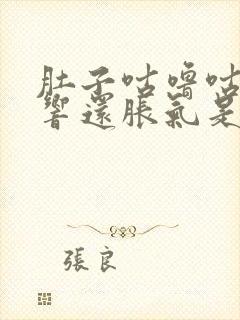 肚子咕嚕咕
響還脹氣是
張良